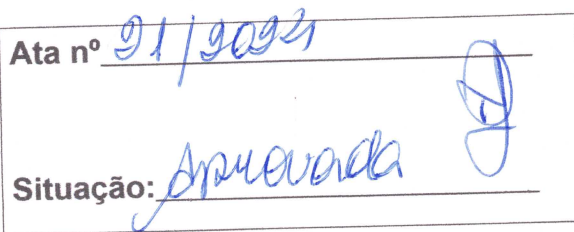 Ata nº 21/2024
Situação: Aprovada